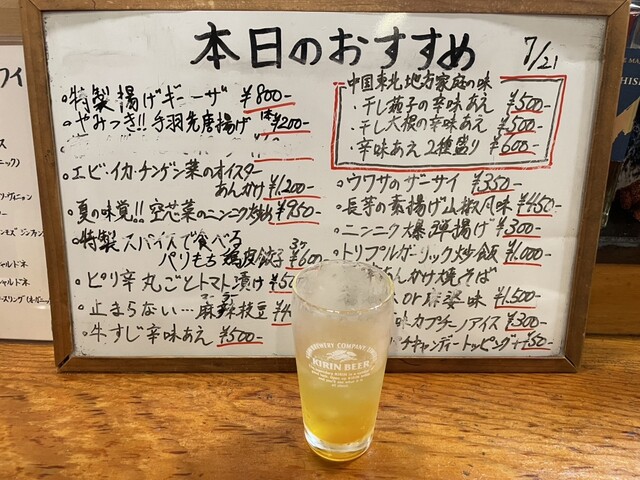 本日のおすすめ
7/21
・特製揚げギョーザ ¥800-
・やみつき!!手羽先唐揚げ 1本 ¥200-
・エビ・イカ・チンゲン菜のオイスター
あんかけ ¥1,200-
・夏の味覚!!空芯菜のニンニク炒め ¥950-
・特製スパイスで食べる
パリもち鶏皮餃子 3ケ ¥600-
・ピリ辛丸ごとトマト漬け
・止まらない…麻辣枝豆
・牛すじ辛味あえ ¥500-
中国東北地方家庭の味
・干し茄子の辛味あえ ¥500-
・干し大根の辛味あえ ¥500-
・辛味あえ2種盛り ¥600-
・ウワサのザーサイ ¥350-
・長芋の素揚げ山椒風味 ¥450
・ニンニク爆弾揚げ ¥300-
・トリプルガーリック炒飯 ¥1,000-
あんかけ焼そば
or 麻婆味 ¥1,500-
味カプチーノアイス ¥300-
チキャンデートッピング +50-
KIRIN BEER